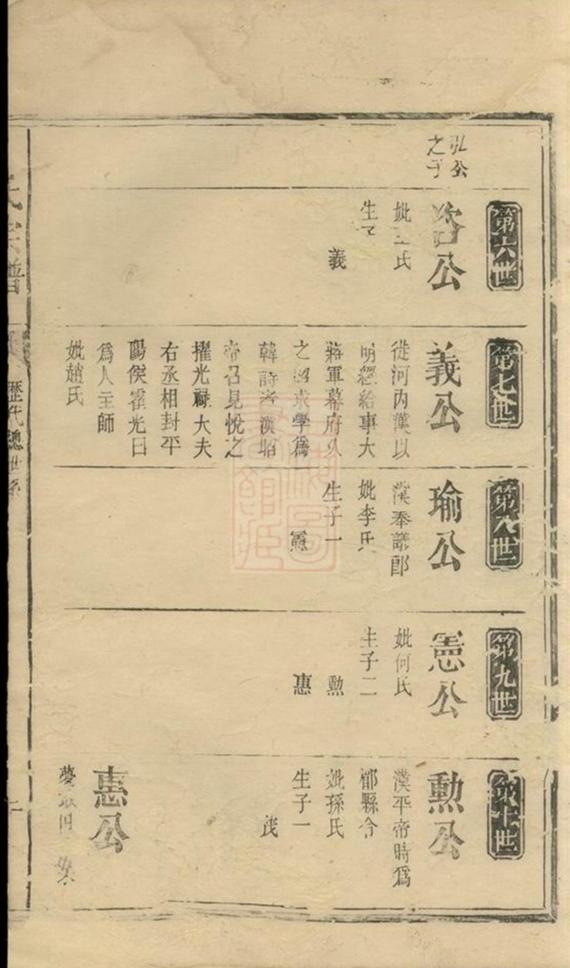 弘公
之子
第六世
公
妣王氏
生子
義
第七世
義公
從河內漢以
明經給事大
將軍幕府久
之 求學爲
韓詩者漢昭
帝召見悅之
擢光祿大夫
右丞相封平
陽侯霍光曰
爲人主師
妣趙氏
第八世
瑜公
漢奉議郎
妣李氏
生子一
憲
第九世
憲公
妣何氏
生子二
勲
惠
第十世
勲公
漢平帝時爲
縣令
妣孫氏
生子一
茂
惠公
氏宗譜
歷代總世系